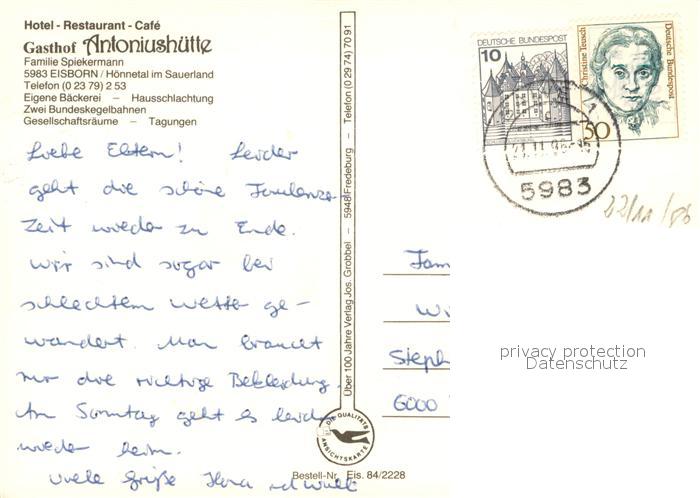 Hotel - Restaurant - Café
Gasthof Antoniushütte
Familie Spiekermann
5983 EISBORN / Hönnetal im Sauerland
Telefon (0 23 79) 2 53
Eigene Bäckerei – Hausschlachtung
Zwei Bundeskegelbahnen
Gesellschaftsräume – Tagungen
Liebe Eltern! Leider
geht die schöne Faulenzer
Zeit wieder zu Ende.
Wir sind sogar bei
schlechtem Wetter ge-
wandert. Man braucht
nur die richtige Bekleidung.
Am Sonntag geht es leider
wieder heim.
Viele Grüße
Über 100 Jahre Verlag Jos. Grobbel – 5948 Fredeburg – Telefon (0 29 74) 70 91
DIE QUALITÄTS
ANSICHTSKARTE
Bestell-Nr. Eis. 84/2228
DEUTSCHE BUNDESPOST
10
Christine Teusch
Deutsche Bundespost
50
5983
22/11/86
Fam
Wi
Steph
6000
privacy protection
Datenschutz